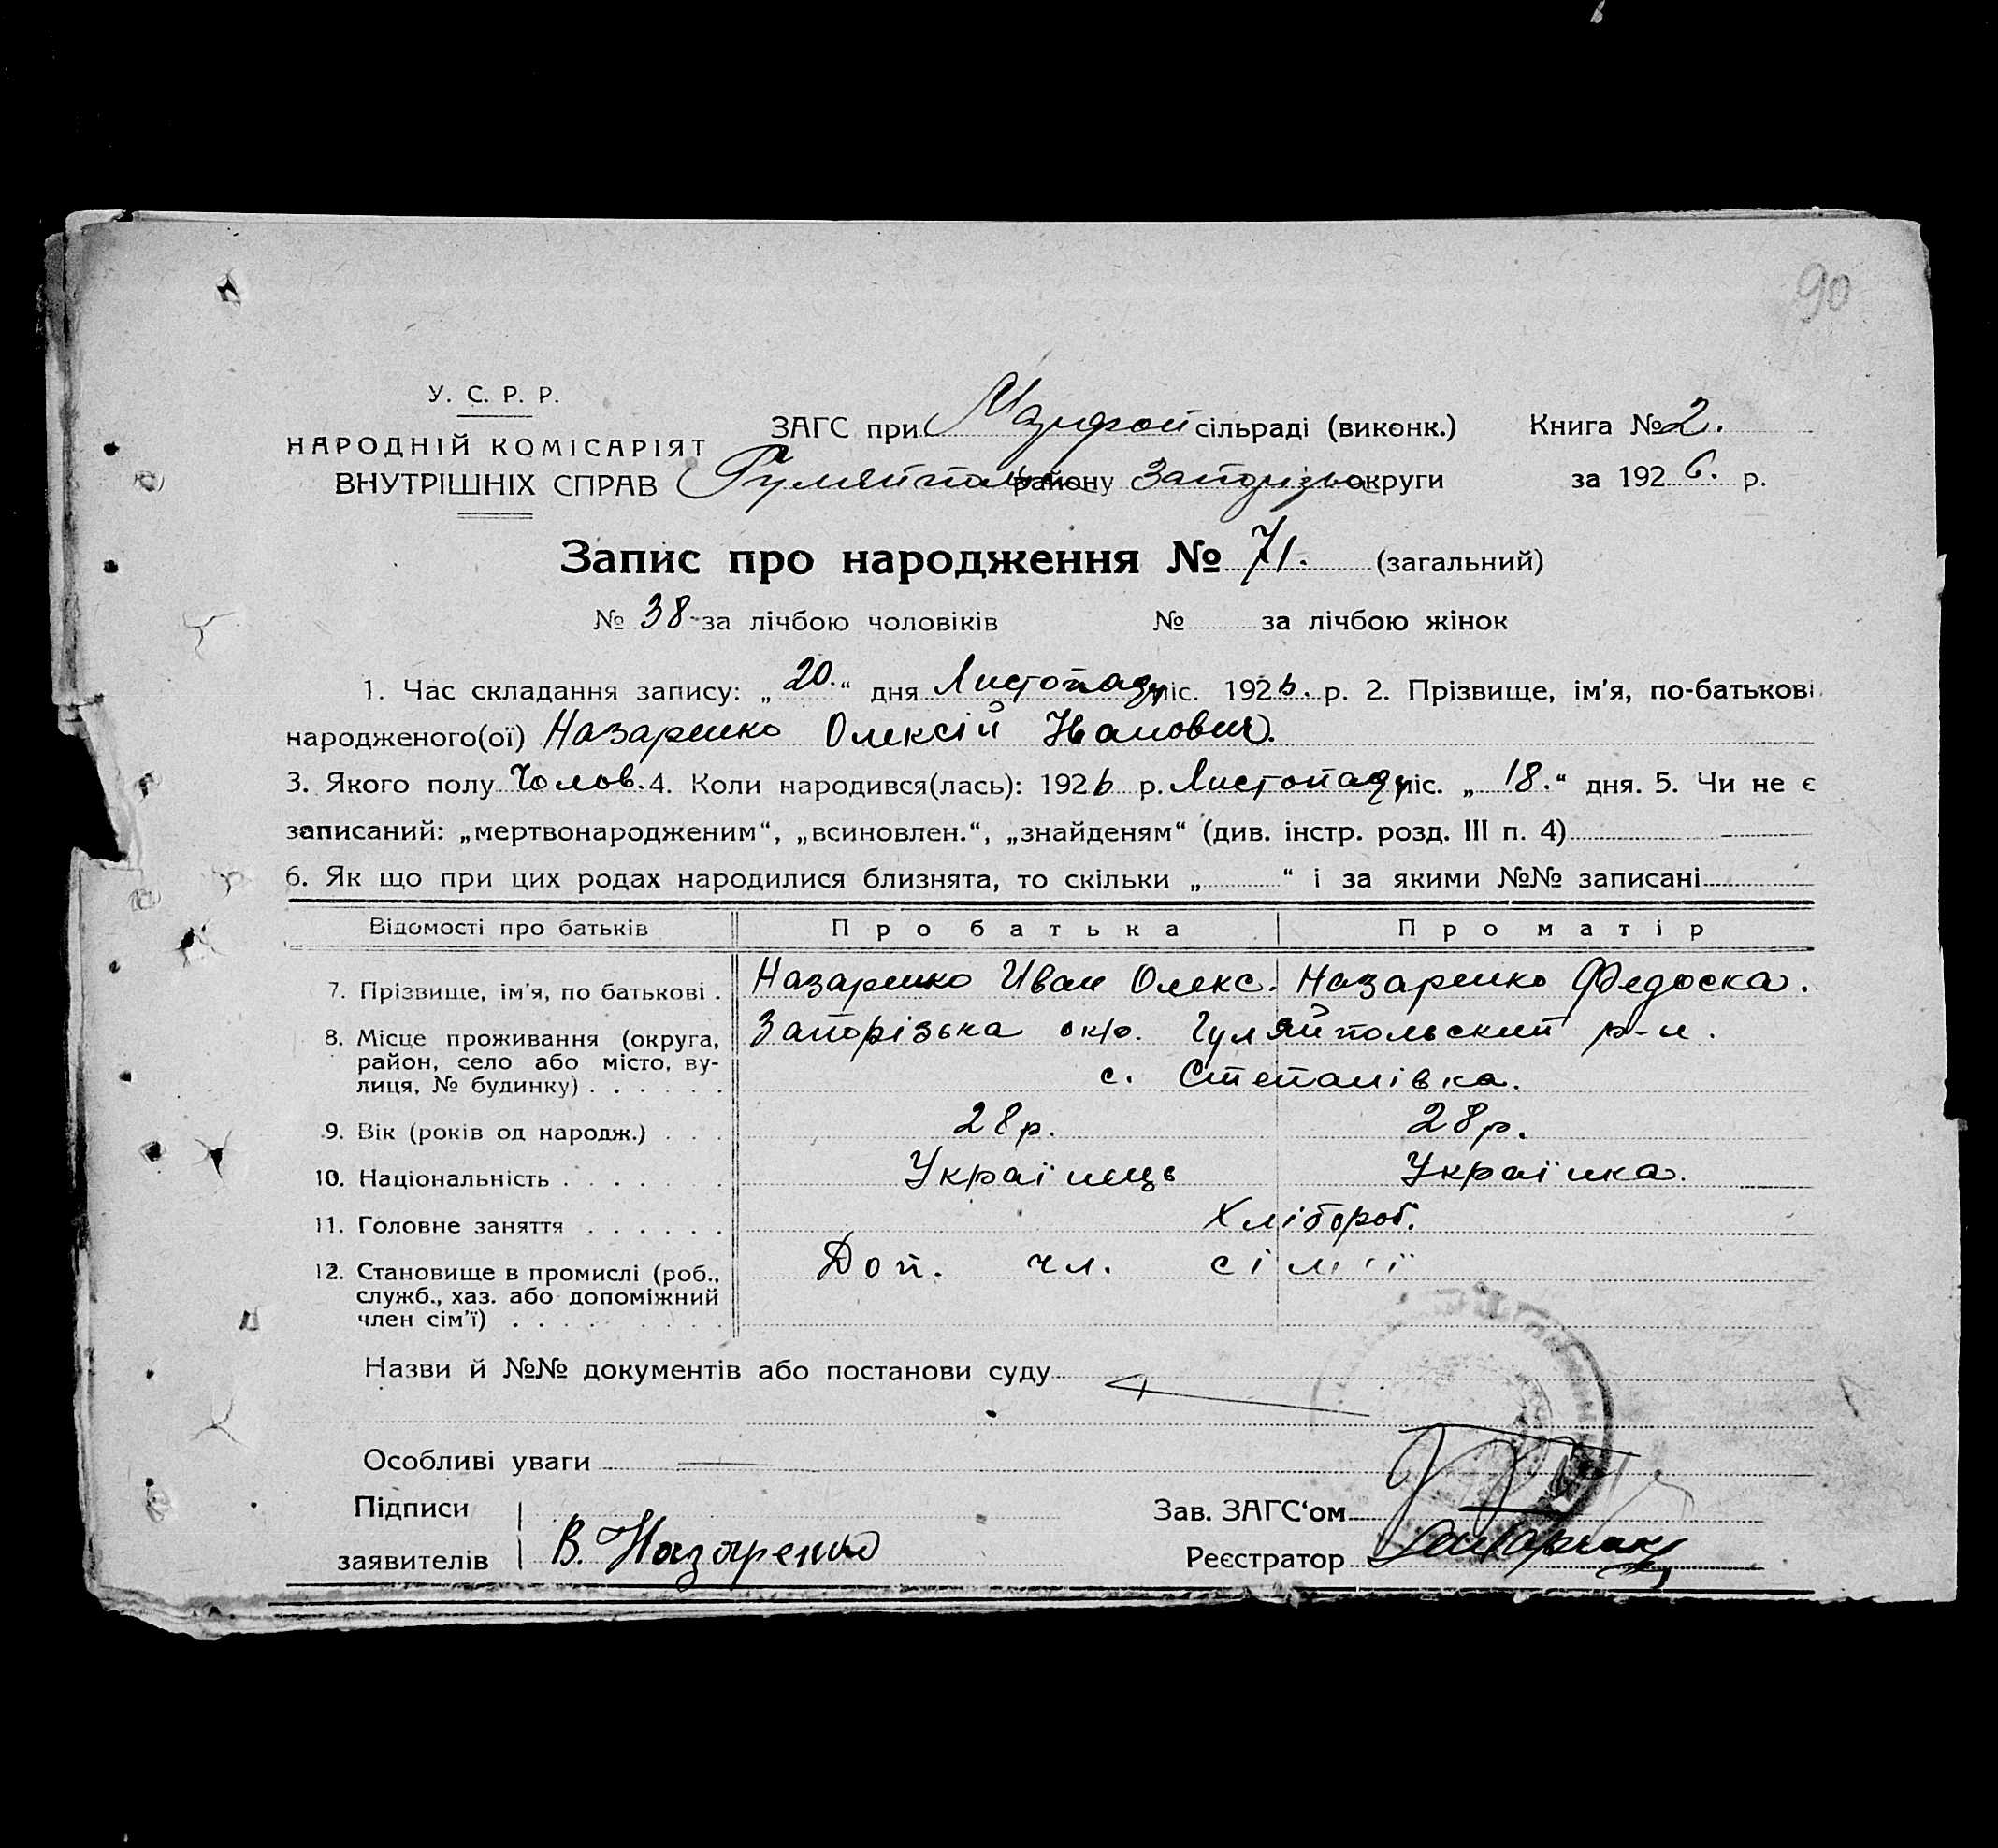 90
У. С. Р. Р.
НАРОДНІЙ КОМІСАРІЯТ
ВНУТРІШНІХ СПРАВ
ЗАГС при сільраді (виконк.) Книга № 2.
району Запорізько округи за 1926. р.
Запис про народження № 71. (загальний)
№ 38 за лічбою чоловіків № за лічбою жінок
1. Час складання запису: „ 20. “ дня Листопаду міс. 1926. р. 2. Прізвище, ім'я, по-батькові
народженого(ої) Назаренко Олексій Иванович.
3. Якого полу Чолов. 4. Коли народився(лась): 1926 р. Листопаду міс. „ 18. “ дня. 5. Чи не є
записаний: „мертвонародженим“, „всиновлен.“, „знайденям“ (див. інстр. розд. III п. 4)
6. Як що при цих родах народилися близнята, то скільки „ “ і за якими №№ записані
Відомості про батьків Про батька Про матір
7. Прізвище, ім'я, по батькові . Назаренко Иван Олекс. Назаренко Федоска.
8. Місце проживання (округа, Запорізька окр. Гуляйпольский р-н.
район, село або місто, ву-
лиця, № будинку) . . . . . . с. Степанівка.
9. Вік (років од народж.) . . . 28 р. 28 р.
10. Національність . . . . . . . Українець Українка.
11. Головне заняття . . . . . . Хлібороб.
12. Становище в промислі (роб., Доп. чл. сімії
служб., хаз. або допоміжний
член сім'ї) . . . . . . . . .
Назви й №№ документів або постанови суду
Особливі уваги
Підписи
заявителів В. Назаренко
Зав. ЗАГС'ом
Реєстратор